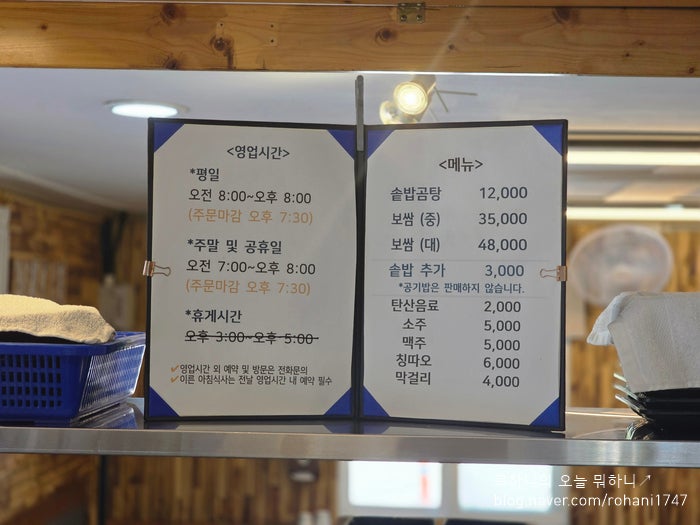 <영업시간>
*평일
오전 8:00~오후 8:00
(주문마감 오후 7:30)
*주말 및 공휴일
오전 7:00~오후 8:00
(주문마감 오후 7:30)
*휴게시간
오후 3:00~오후 5:00
✓영업시간 외 예약 및 방문은 전화문의
✓이른 아침식사는 전날 영업시간 내 예약 필수
<메뉴>
솥밥곰탕 12,000
보쌈 (중) 35,000
보쌈 (대) 48,000
솥밥 추가 3,000
*공기밥은 판매하지 않습니다.
탄산음료 2,000
소주 5,000
맥주 5,000
칭따오 6,000
막걸리 4,000
오늘 뭐하니↗
blog.naver.com/rohani1747